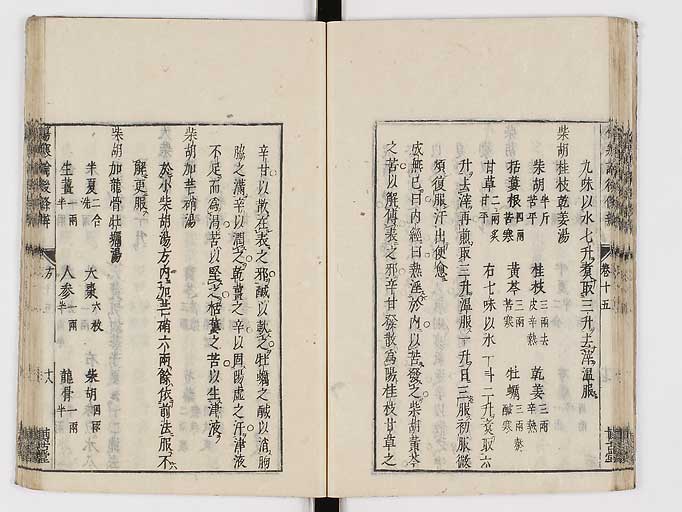 九味以水七升煮取三升去滓溫服
柴胡桂枝乾姜湯
柴胡半斤苦平 桂枝三兩去皮辛熱 乾姜三兩辛熱
括蔞根四兩苦寒 黃芩三兩苦寒 牡蠣三兩熬鹹寒
甘草二兩炙甘平 右七味以水一斗二升煮取六
升去滓再煎取三升溫服一升日三服初服微
煩復服汗出便愈
成無已曰內經曰熱淫於內以苦發之柴胡黃芩
之苦以解傳表之邪辛甘發散為陽桂枝甘草之
卷十五
辛甘以散在表之邪鹹以耎之牡蠣之鹹以消胸
脇之滿辛以潤之乾薑之辛以固陽虛之汗津液
不足而為渴苦以堅之栝蔞之苦以生津液
柴胡加芒硝湯
於小柴胡湯方內加芒硝六兩餘依前法服不
解更服
柴胡加龍骨牡蠣湯
半夏二合洗 大棗六枚 柴胡四兩
生薑一兩半 人參一兩半 龍骨一兩半
傷寒論後條辨
十八